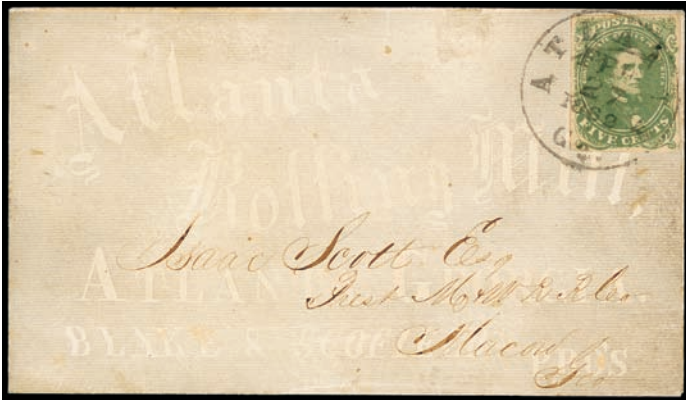 Atlanta
Rolling Mill,
ATLANTA, GEORGIA.
PROS
POSTAGE
FIVE CENTS
ATLANTA
1862
Isaac Scott Esq
Prest M & W R R Co
Macon
Geo